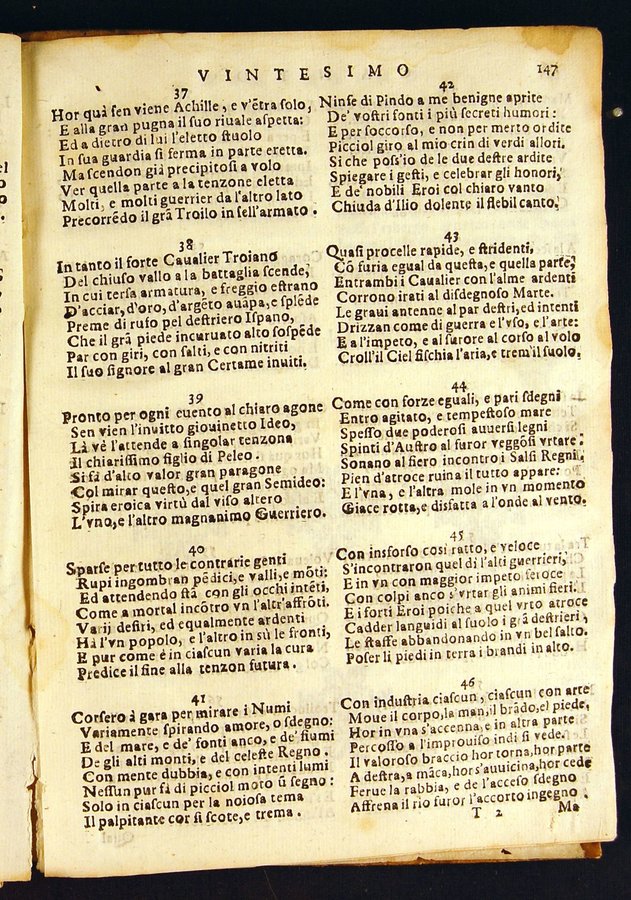 VINTESIMO 147
37
Hor quà sen viene Achille, e v'ētra solo,
E alla gran pugna il suo riuale aspetta:
Ed a dietro di lui l'eletto stuolo
In sua guardia si ferma in parte eretta.
Ma scendon già precipitosi a volo
Ver quella parte a la tenzone eletta
Molti, e molti guerrier da l'altro lato
Precorrēdo il grā Troilo in sell'armato.
38
In tanto il forte Caualier Troiano
Del chiuso vallo a la battaglia scende,
In cui tersa armatura, e freggio estrano
D'acciar, d'oro, d'argēto auāpa, e splēde
Preme di rufo pel destriero Ispano,
Che il grā piede incuruato alto sospēde
Par con giri, con salti, e con nitriti
Il suo signore al gran Certame inuiti.
39
Pronto per ogni euento al chiaro agone
Sen vien l'inuitto giouinetto Ideo,
Là vè l'attende a singolar tenzona
Il chiarissimo figlio di Peleo.
Si fà d'alto valor gran paragone
Col mirar questo, e quel gran Semideo:
Spira eroica virtù dal viso altero
L'vno, e l'altro magnanimo Guerriero.
40
Sparse per tutto le contrarie genti
Rupi ingombran pēdici, e valli, e mōti:
Ed attendendo stā con gli occhi intēti,
Come a mortal incōtro vn l'altr'affrōti.
Varij desiri, ed equalmente ardenti
Hà l'vn popolo, e l'altro in sù le fronti,
E pur come è in ciascun varia la cura
Predice il fine alla tenzon futura.
41
Corsero à gara per mirare i Numi
Variamente spirando amore, o sdegno:
E del mare, e de' fonti anco, e de' fiumi
De gli alti monti, e del celeste Regno.
Con mente dubbia, e con intenti lumi
Nessun pur fà di picciol moto il segno:
Solo in ciascun per la noiosa tema
Il palpitante cor si scote, e trema.
42
Ninfe di Pindo a me benigne aprite
De' vostri fonti i più secreti humori:
E per soccorso, e non per merto ordite
Picciol giro al mio crin di verdi allori.
Si che poss'io de le due destre ardite
Spiegare i gesti, e celebrar gli honori,
E de' nobili Eroi col chiaro vanto
Chiuda d'Ilio dolente il flebil canto.
43
Quasi procelle rapide, e stridenti,
Cō furia egual da questa, e quella parte,
Entrambi i Caualier con l'alme ardenti
Corrono irati al disdegnoso Marte.
Le graui antenne al par destri, ed intenti
Drizzan come di guerra e l'vso, e l'arte:
E a l'impeto, e al furore al corso al volo
Croll'il Ciel fischia l'aria, e trem'il suolo.
44
Come con forze eguali, e pari sdegni
Entro agitato, e tempestoso mare
Spesso due poderosi auuersi legni
Spinti d'Austro al furor veggōsi vrtare:
Sonano al fiero incontro i Salsi Regni.
Pien d'atroce ruina il tutto appare:
E l'vna, e l'altra mole in vn momento
Giace rotta, e disfatta a l'onde al vento.
45
Con insforso così ratto, e veloce
S'incontraron quel dì l'alti guerrieri,
E in vn con maggior impeto feroce
Con colpi anco s'vrtar gli animi fieri.
E i forti Eroi poiche a quel vrto atroce
Cadder languidi al suolo i grā destrieri,
Le staffe abbandonando in vn bel salto.
Poser li piedi in terra i brandi in alto.
46
Con industria ciascun, ciascun con arte
Moue il corpo, la man, il brādo, el piede,
Hor in vna s'accenna, e in altra parte
Percosso a l'improuiso indi si vede.
Il valoroso braccio hor torna, hor parte
A destra, a māca, hor s'auuicina, hor cede
Ferue la rabbia, e de l'acceso sdegno
Affrena il rio furor l'accorto ingegno.
T 2 Ma